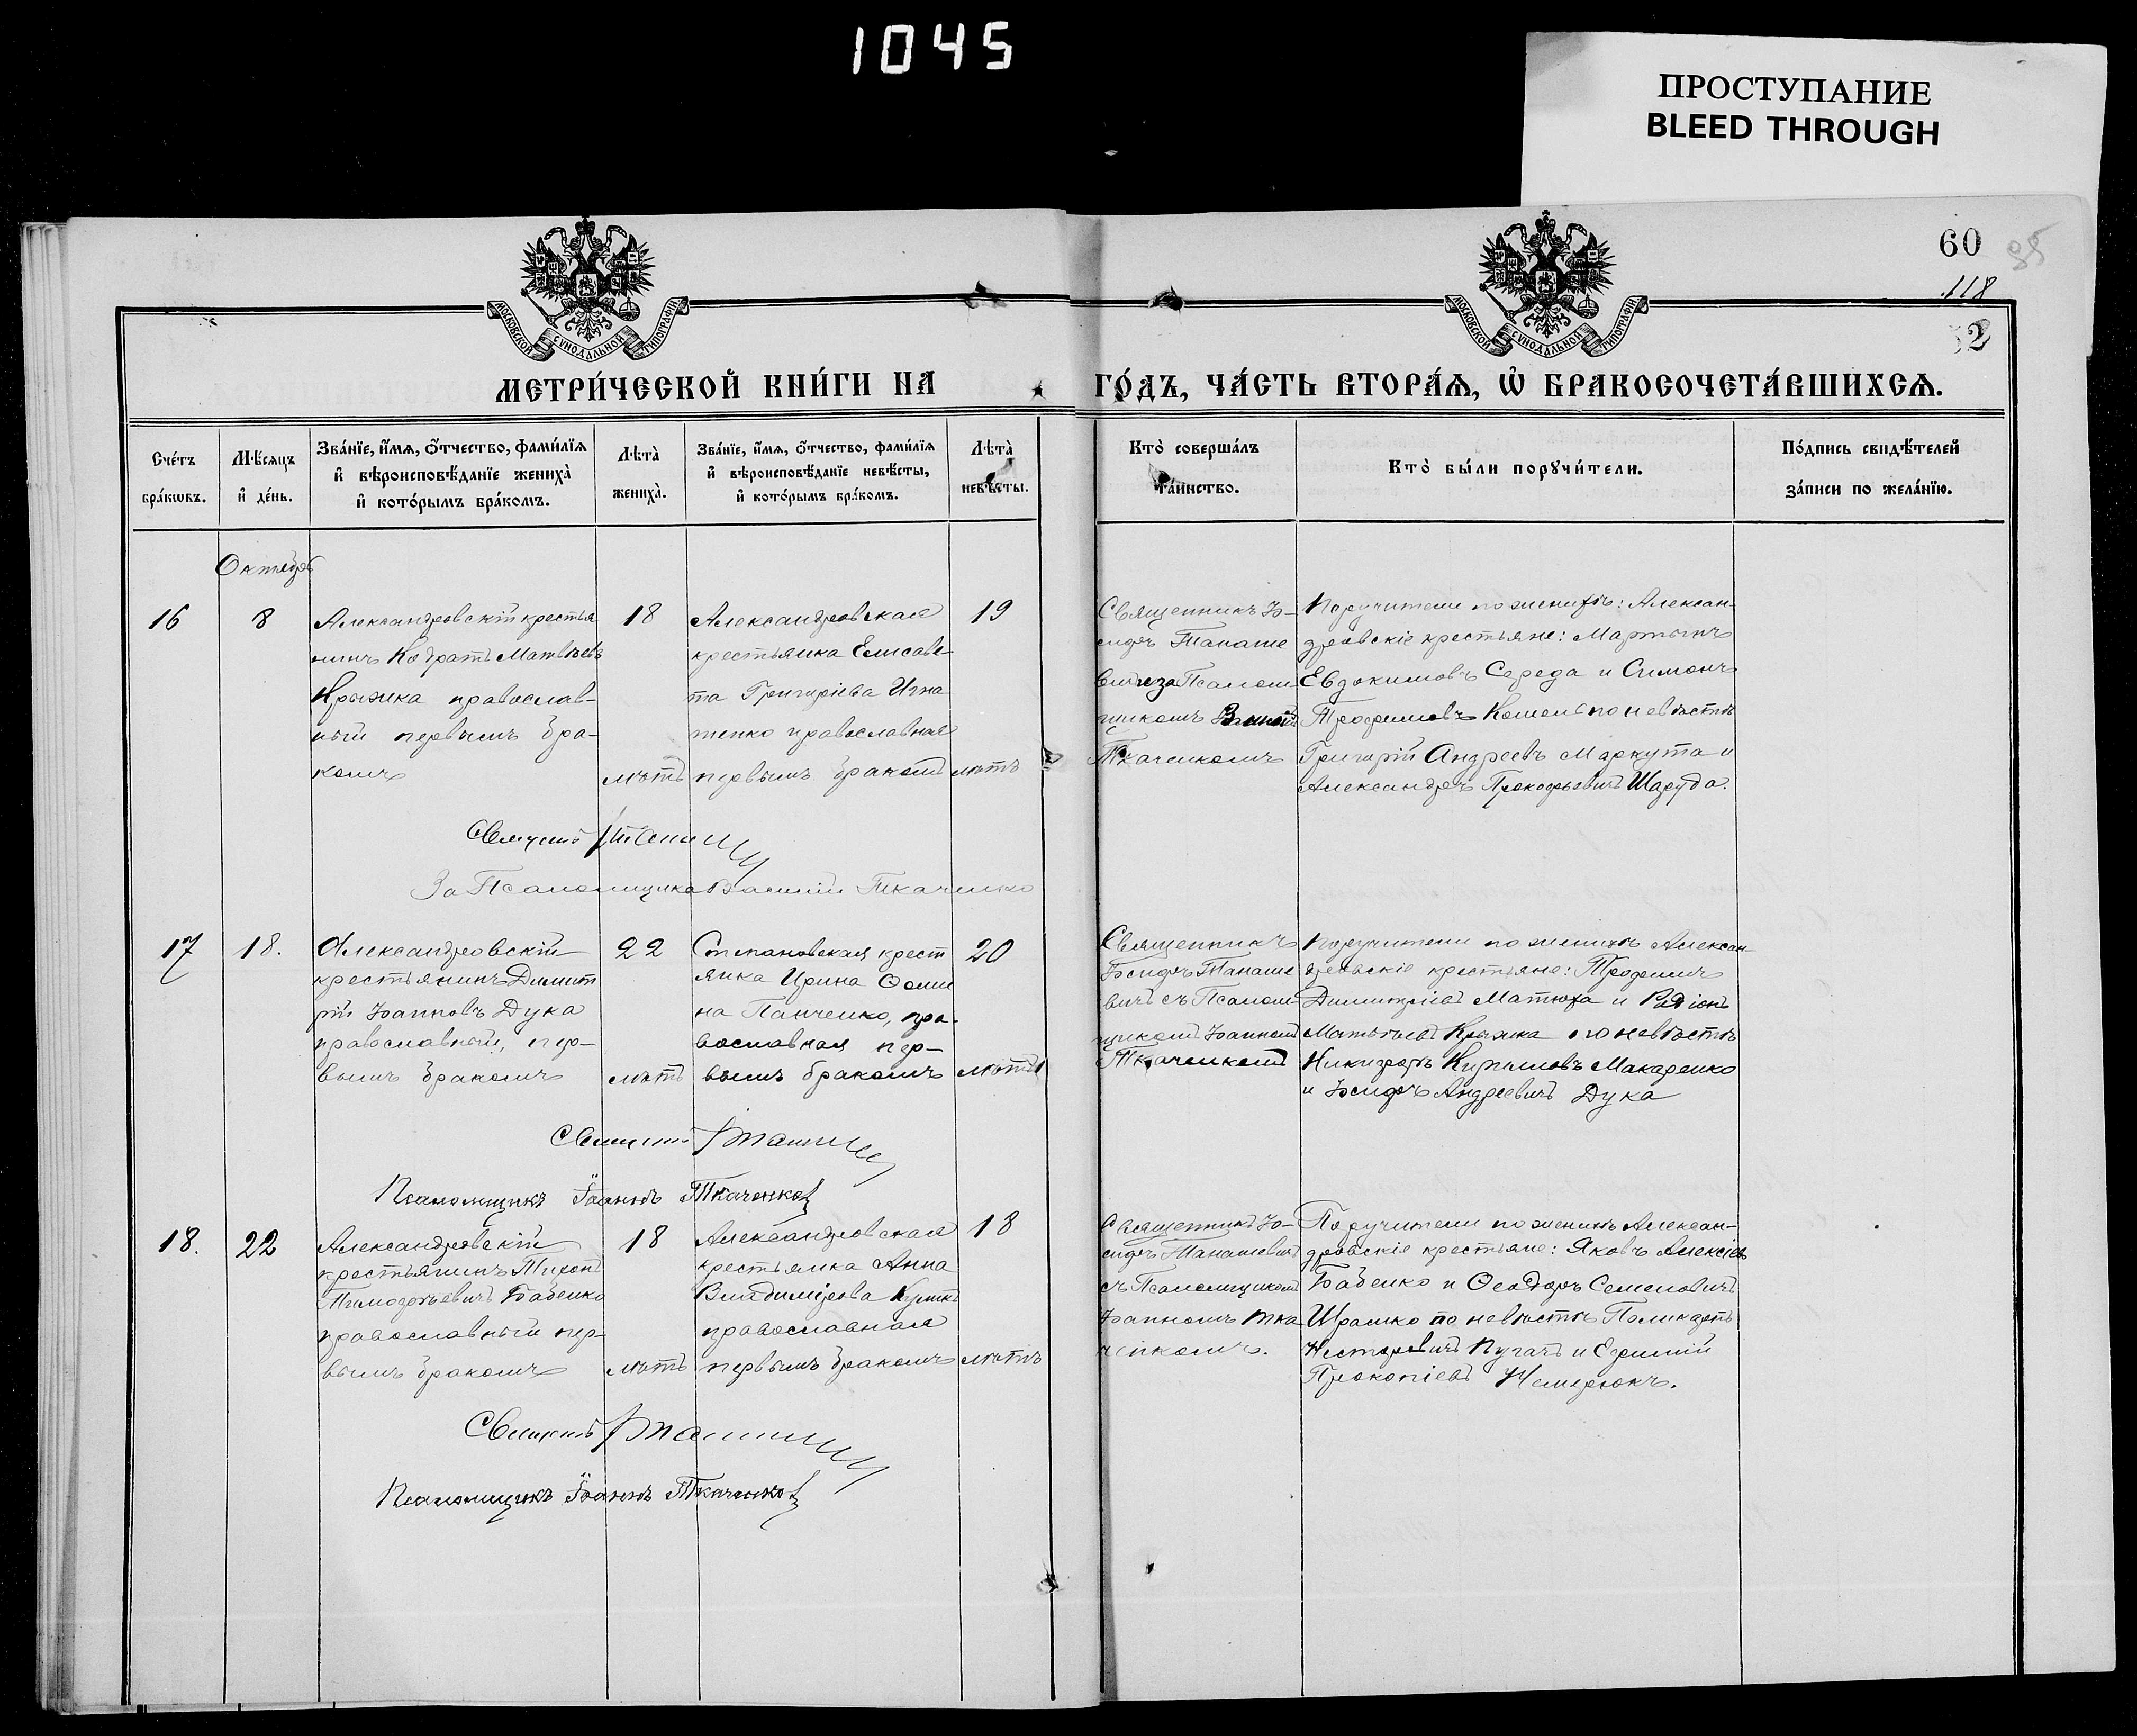 1045
ПРОСТУПАНИЕ
BLEED THROUGH
60
85
118
2
МОСКОВСКОЙ СУНОДАЛЬНОЙ ТИПОГРАФІИ
МОСКОВСКОЙ СУНОДАЛЬНОЙ ТИПОГРАФІИ
МЕТРИ́ЧЕСКОЙ КНИ́ГИ НА
ГО́ДЪ, ЧА́СТЬ ВТОРА́Ѧ, Ѡ БРАКОСОЧЕТА́ВШИХСѦ.
Сче́тъ
бра́кѡвъ.
Мѣ́сѧцъ
и҆ де́нь.
Зва́нїе, и҆́мѧ, ѻ҆́тчество, фами́лїѧ
и҆ вѣроисповѣ́данїе жениха̀
и҆ кото́рымъ бра́комъ.
Лѣта̀
жениха̀.
Зва́нїе, и҆́мѧ, ѻ҆́тчество, фами́лїѧ
и҆ вѣроисповѣ́данїе невѣ́сты,
и҆ кото́рымъ бра́комъ.
Лѣта̀
невѣ́сты.
Кто̀ соверша́лъ
та́инство.
Кто̀ бы́ли порꙋчи́тели.
По́дпись свидѣ́телей
за́писи по жела́нїю.
Октябрь
16
8
Александровскій крестья
нинъ Кодратъ Матвѣевъ
Крыжка православ-
ный первымъ бра-
комъ
18
лѣтъ
Александровская
крестьянка Елисаве-
та Григоріева Игна
тенко православная
первымъ бракомъ
19
лѣтъ
Священникъ Іо-
сифъ Танаше
вичъ за Псалом-
щикомъ
Ткаченкомъ
Поручители по женихѣ: Алексан-
дровскіе крестьяне: Мартынъ
Евдокимовъ Середа и Симонъ
Трофимовъ по невѣстѣ
Григорій Андреевъ Маркута и
Александръ Прокофьевичъ
Священникъ
За Псаломщика Василій Ткаченко
17
18.
Александровскій
крестьянинъ Димит
рій Іоанновъ Дука
православный, пер-
вымъ бракомъ
22
лѣтъ
Степановская крест
янка Ирина Ѳоми
на Панченко, пра-
вославная пер-
вымъ бракомъ
20
лѣтъ
Священникъ
Іосифъ Танаше
вичъ съ Псалом-
щикомъ Іоанномъ
Ткаченкомъ
Поручители по женихѣ Алексан
дровскіе крестьяне: Трофимъ
Димитріевъ Матюха и Родіонъ
Матвѣевъ Крыжка по невѣстѣ
Никифоръ Кириловъ Макаренко
и Іосифъ Андреевичъ Дука
Священникъ
Псаломщикъ Іоаннъ Ткаченко
18.
22
Александровскій
крестьянинъ Тихонъ
Тимофѣевичъ Бабенко
православный пер-
вымъ бракомъ
18
лѣтъ
Александровская
крестьянка Анна
Владимірова
православная
первымъ бракомъ
18
лѣтъ
Священникъ Іо-
сифъ Танашевичъ
съ Псаломщикомъ
Іоанномъ Тка
ченкомъ.
Поручители по женихѣ Алексан-
дровскіе крестьяне: Яковъ Алексіевъ
Бабенко и Ѳеодоръ Семеновичъ
Ирашко по невѣстѣ
Несторовичъ Пугачъ и Ефимій
Прокопіевъ Немерюкъ.
Священникъ
Псаломщикъ Іоаннъ Ткаченко